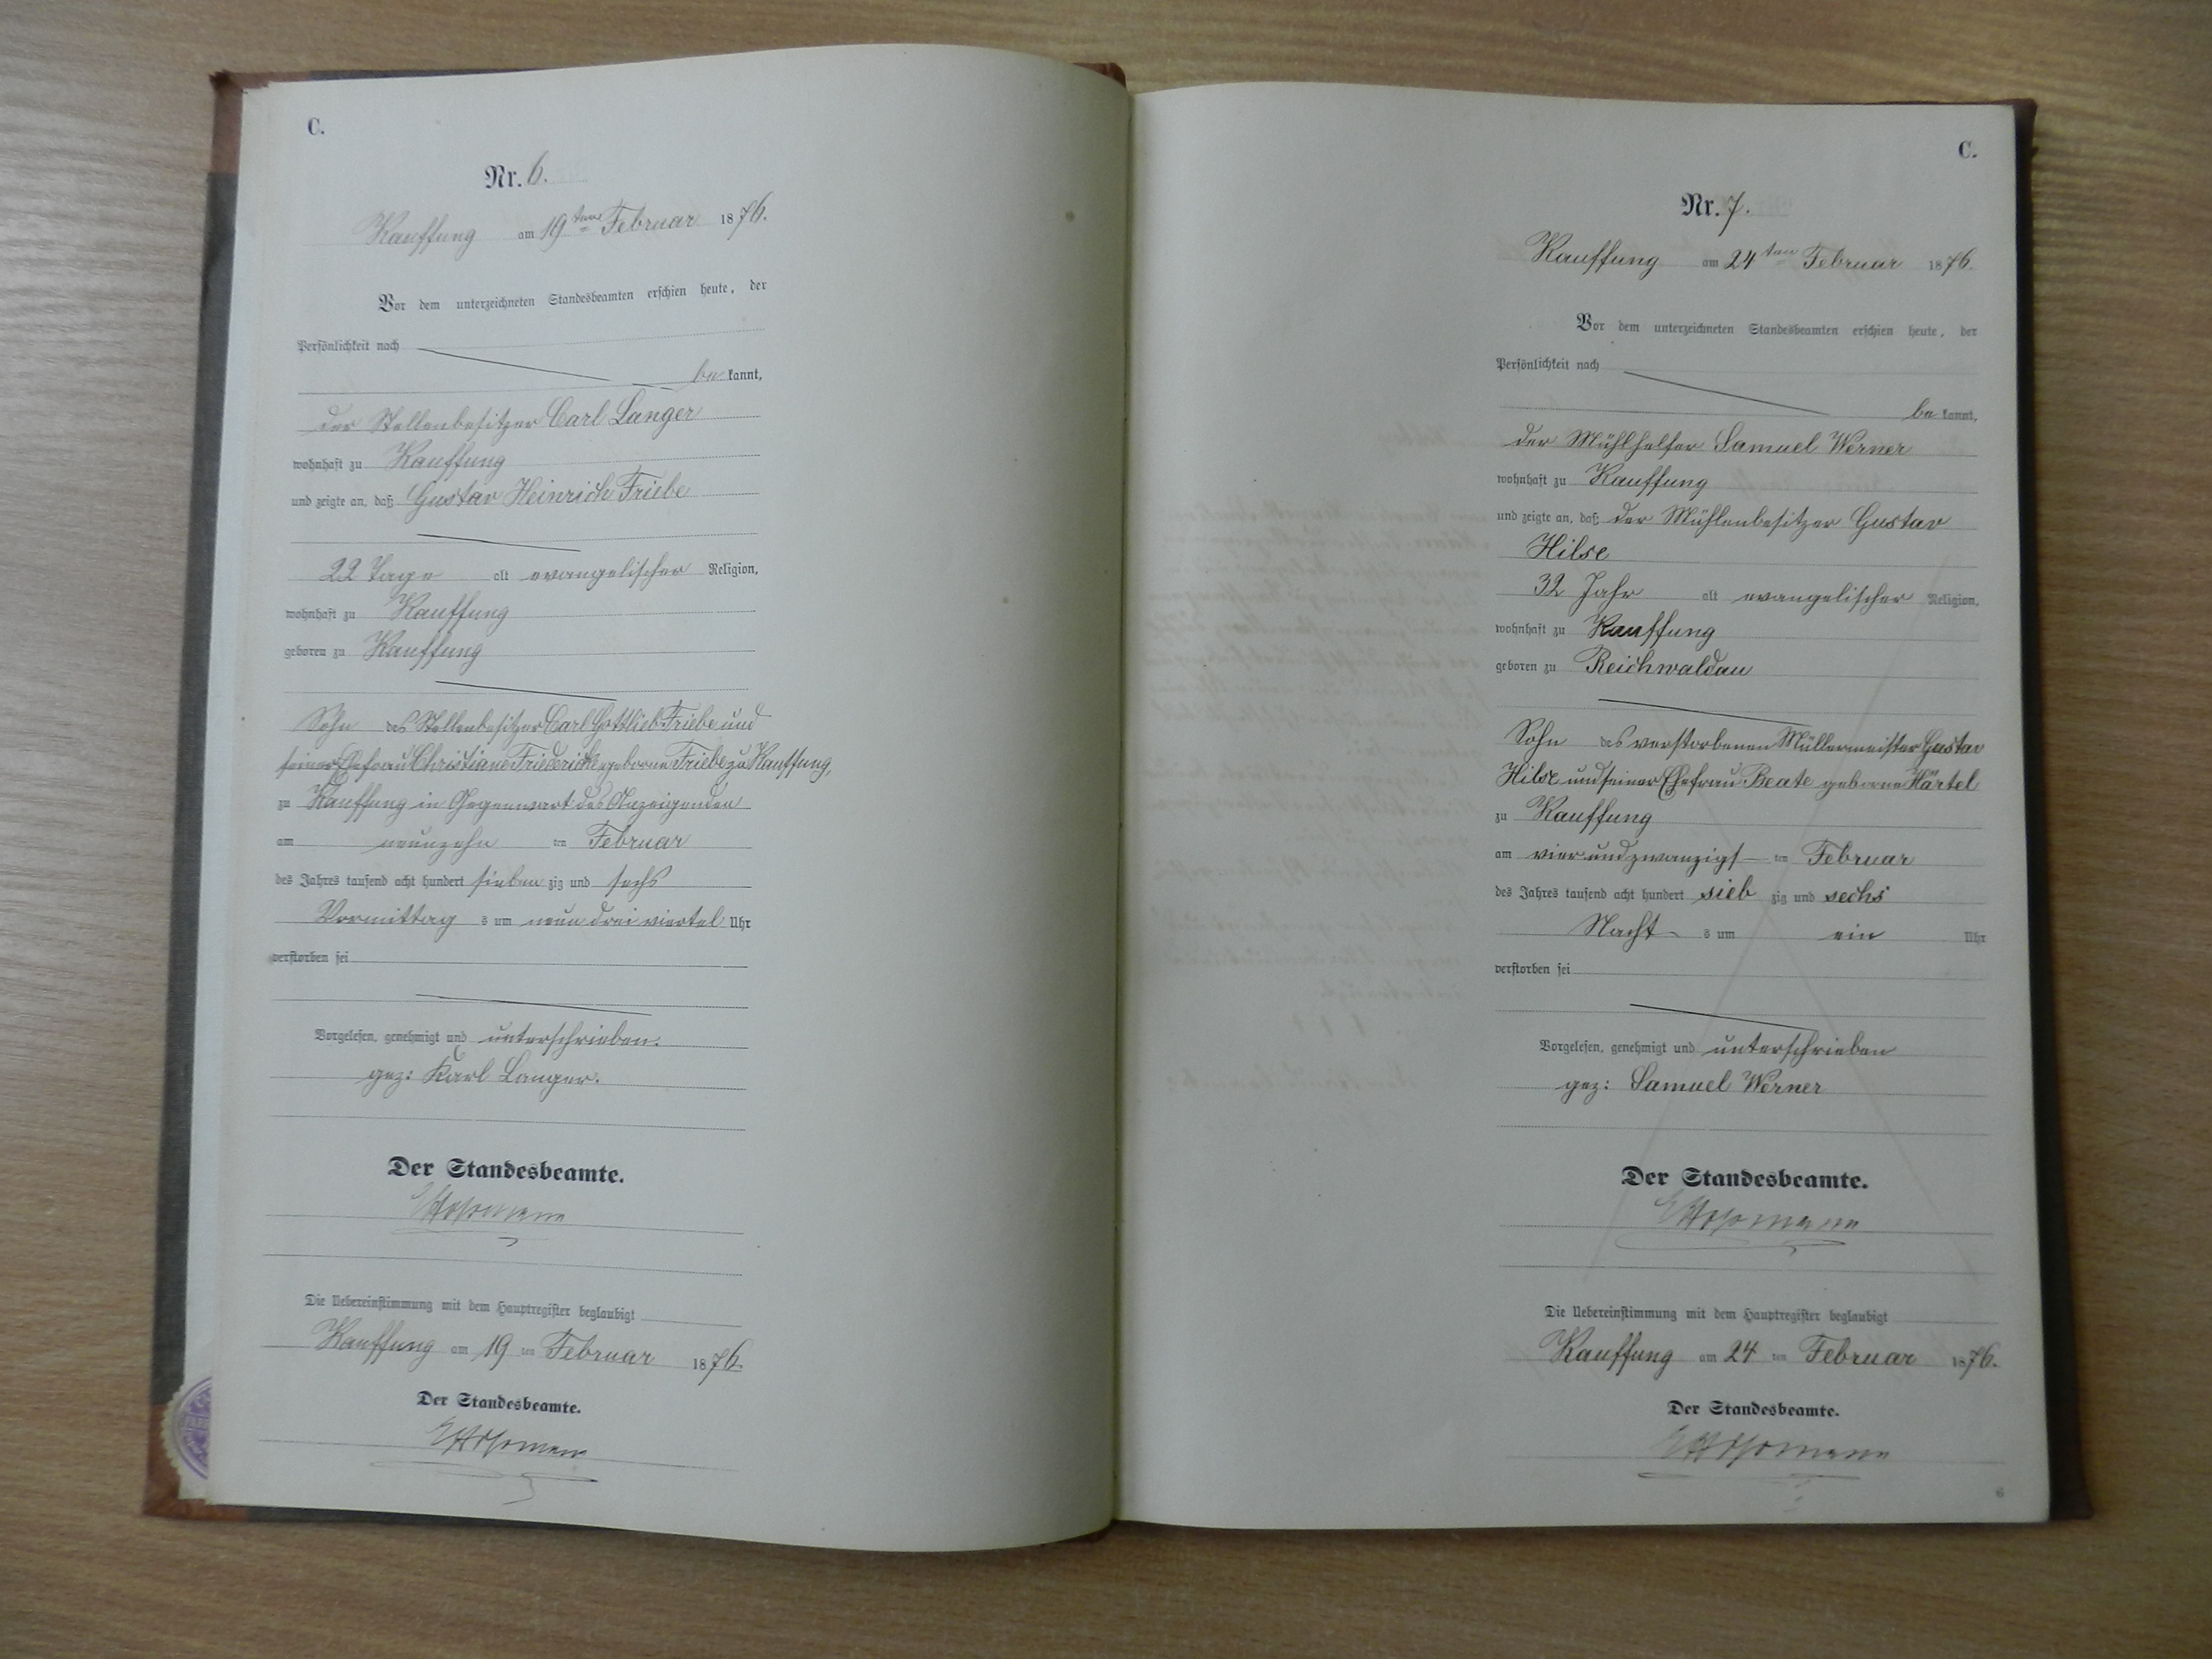 C.
Nr. 6.
Kauffung am 19ten Februar 1876.
Vor dem unterzeichneten Standesbeamten erschien heute, der
Persönlichkeit nach
bekannt,
der Stellenbesitzer Carl Langer
wohnhaft zu Kauffung
und zeigte an, daß Gustav Heinrich Friebe
22 Tage alt evangelischer Religion,
wohnhaft zu Kauffung
geboren zu Kauffung
Sohn des Stellenbesitzer Carl Gottlieb Friebe und
seiner Ehefrau Christiane Friedericke geborne Friebe zu Kauffung,
zu Kauffung in Gegenwart des Anzeigenden
am neunzehn ten Februar
des Jahres tausend acht hundert sieben zig und sechs
Vormittag s um neun drei viertel Uhr
verstorben sei
Vorgelesen, genehmigt und unterschrieben.
gez: Karl Langer.
Der Standesbeamte.
Die Uebereinstimmung mit dem Hauptregister beglaubigt
Kauffung am 19 ten Februar 1876.
Der Standesbeamte.
C.
Nr. 7.
Kauffung am 24ten Februar 1876.
Vor dem unterzeichneten Standesbeamten erschien heute, der
Persönlichkeit nach
bekannt,
der Mühlhelfer Samuel Werner
wohnhaft zu Kauffung
und zeigte an, daß der Mühlenbesitzer Gustav
Hilse
32 Jahr alt evangelischer Religion,
wohnhaft zu Kauffung
geboren zu Reichwaldau
Sohn des verstorbenen Müllermeister Gustav
Hilse und seiner Ehefrau Beate geborne Härtel
zu Kauffung
am vier und zwanzigs ten Februar
des Jahres tausend acht hundert sieb zig und sechs
Nacht s um ein Uhr
verstorben sei
Vorgelesen, genehmigt und unterschrieben
gez: Samuel Werner
Der Standesbeamte.
Die Uebereinstimmung mit dem Hauptregister beglaubigt
Kauffung am 24 ten Februar 1876.
Der Standesbeamte.
6